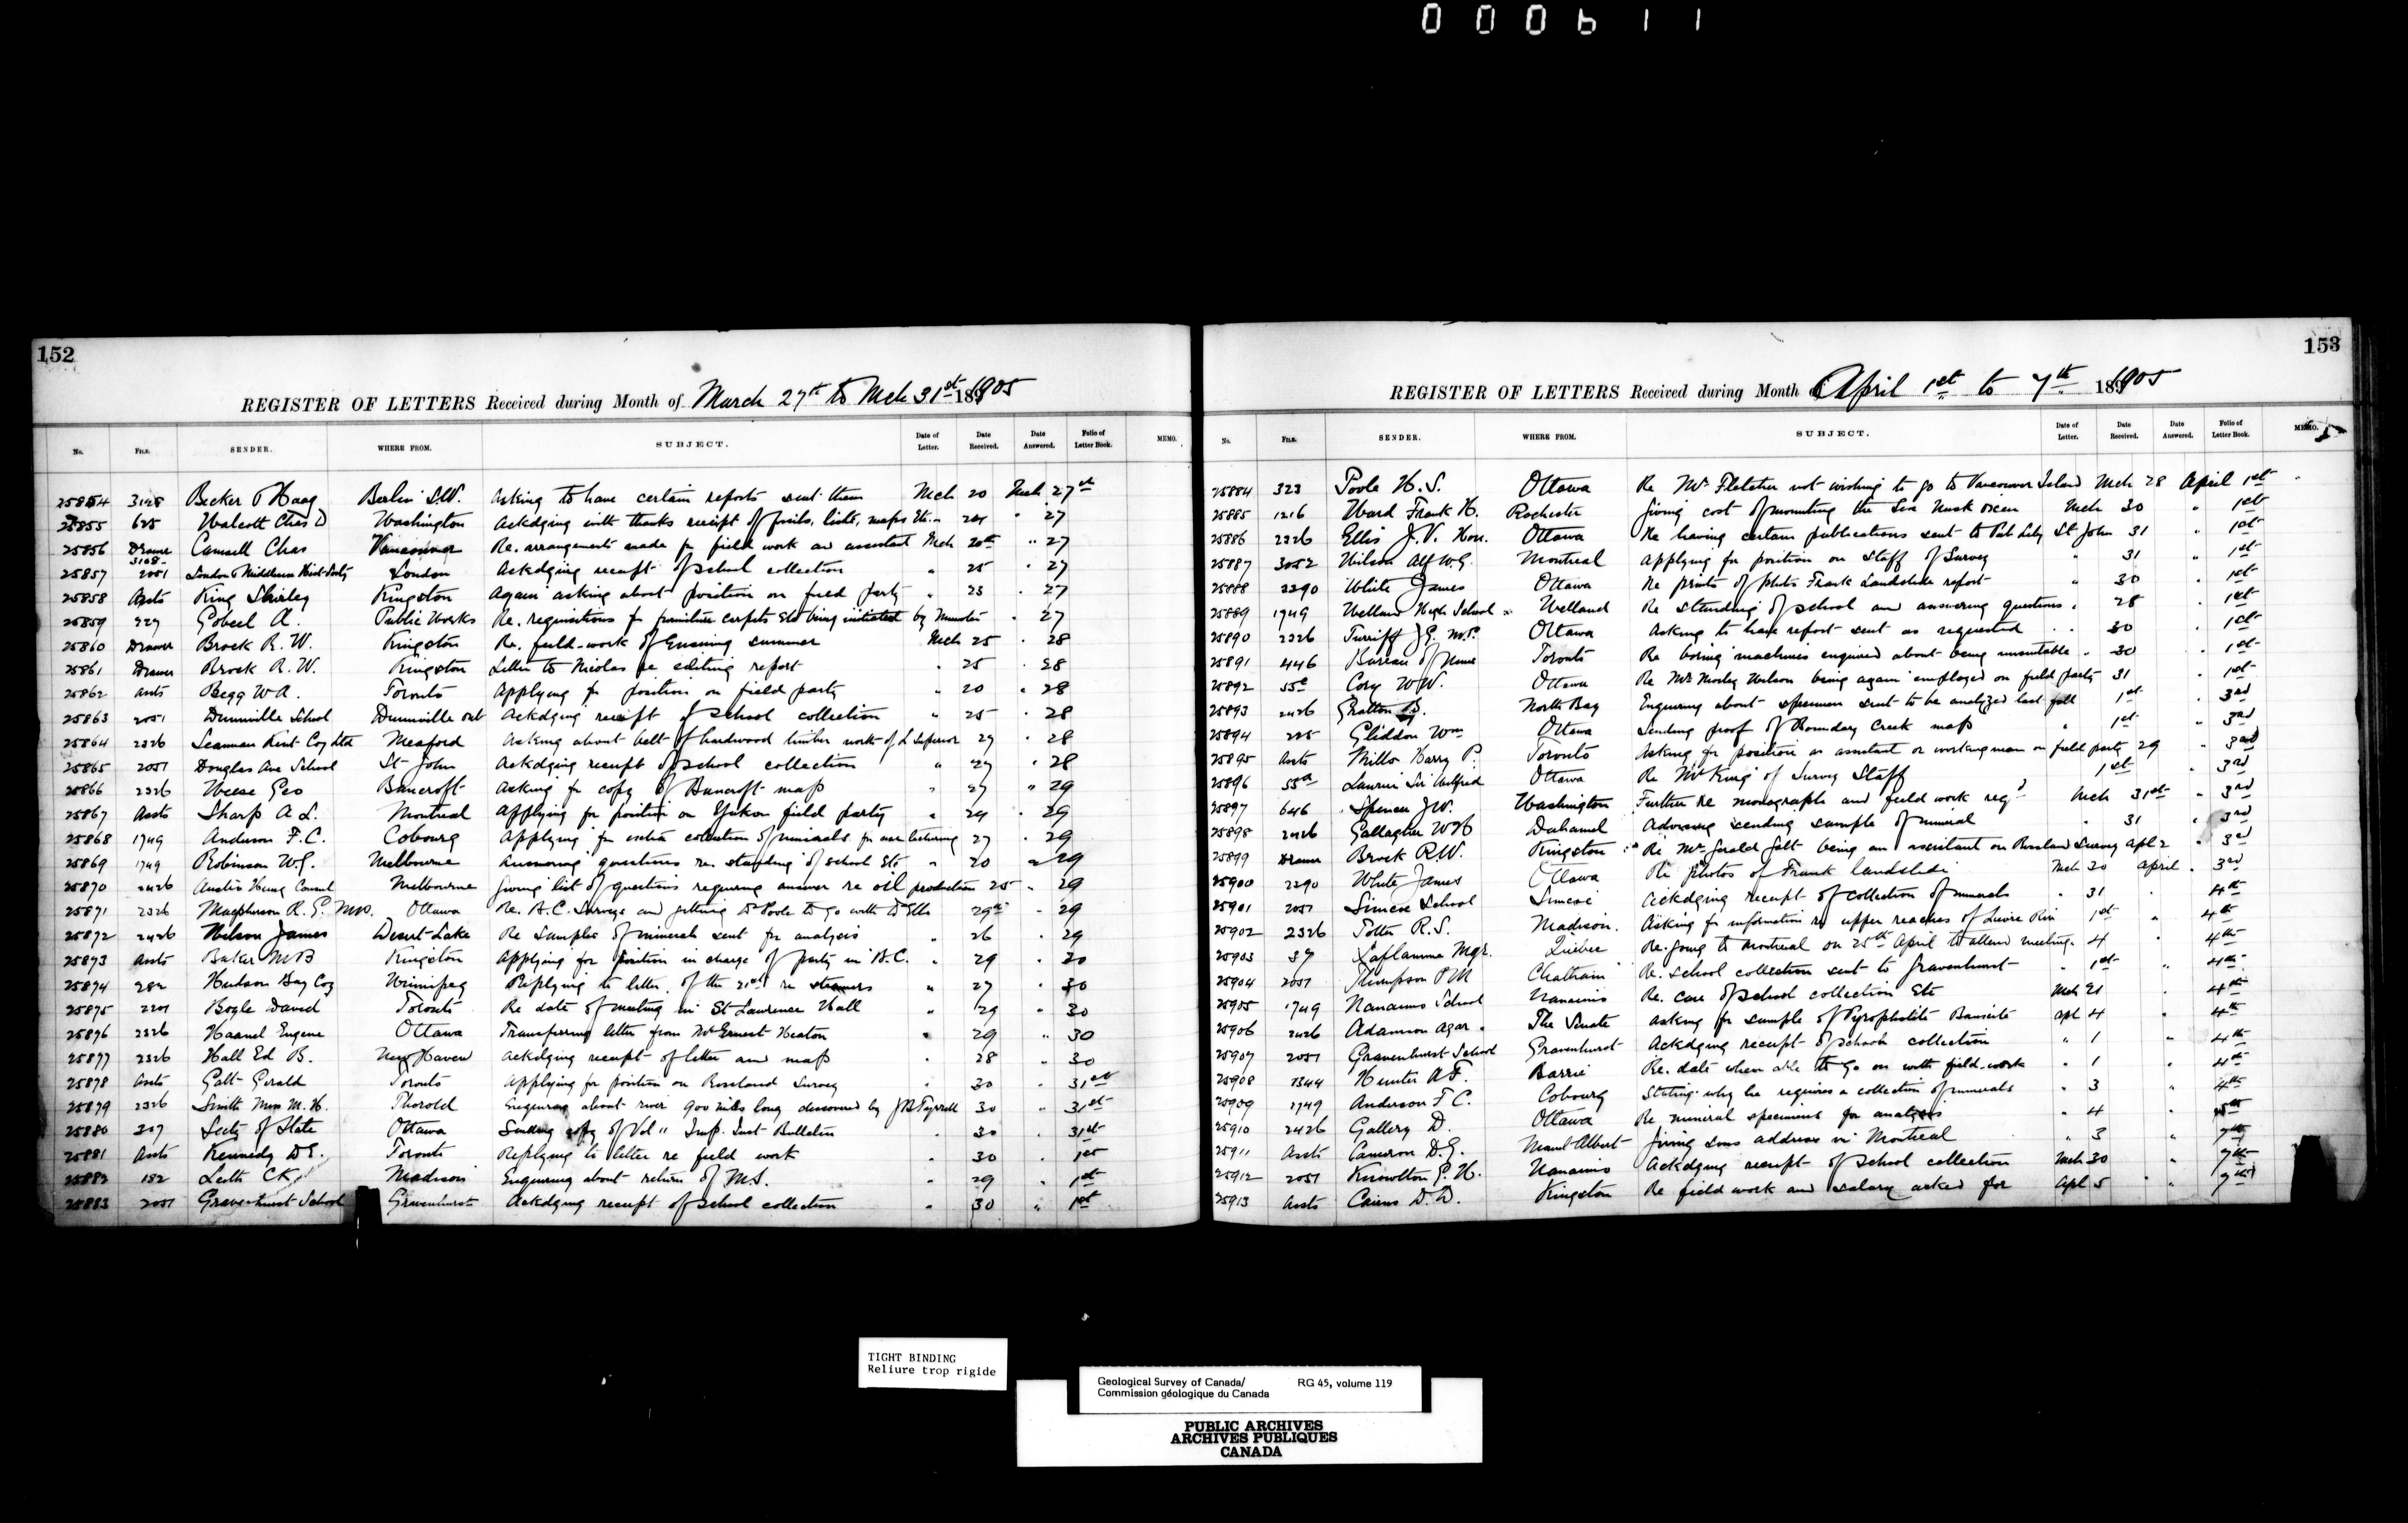 000611
152
REGISTER OF LETTERS Received during Month of March 27th to Mch 31st 1905
No. FILE. SENDER. WHERE FROM. SUBJECT. Date of Letter. Date Received. Date Answered. Folio of Letter Book. MEMO.
25854 3128 Becker & Haag Berlin S.W. Asking to have certain reports sent them Mch 20 Mch 27th
25855 625 Walcott Chas D Washington Ackdging with thanks receipt of fossils, lists, maps Etc. " 24 " 27
25856 Drawer 3108 Camsell Chas Vancouver Re. arrangements made for field work and assistant Mch 20th " 27
25857 2051 London & Middlesex Hist. Socty London Ackdging receipt of school collection " 25 " 27
25858 Assts King Shirley Kingston Again asking about position on field party " 23 " 27
25859 229 Gobeil A. Public Works Re. requisitions for furniture carpets Etc being initiated by Minister " 27
25860 Drawer Brock R.W. Kingston Re. field-work of Ensuing summer Mch 25 " 28
25861 Drawer Brock R.W. Kingston Letter to Nicolas re editing report " 25 " 28
25862 Assts Begg W A. Toronto Applying for position on field party " 20 " 28
25863 2051 Dunnville School Dunnville Ont Ackdging receipt of school collection " 25 " 28
25864 2326 Seaman Kent Coy Ltd Meaford Asking about belt of hardwood timber north of L Superior 27 " 28
25865 2051 Douglas Ave School St John Ackdging receipt of school collection " 27 " 28
25866 2326 Weese Geo Bancroft Asking for copy of Bancroft map " 27 " 29
25867 Assts Sharp A L. Montreal Applying for position on Yukon field party " 24 " 29
25868 1749 Anderson F.C. Cobourg Applying for extra collection of minerals for use lecturing 27 " 29
25869 1749 Robinson W.G. Melbourne Answering questions re. standing of school Etc " 20 " 29
25870 2426 Austro Hung Consul Melbourne Giving list of questions requiring answer re oil production 25 " 29
25871 2326 Macpherson R.G. M.P. Ottawa Re. B.C. Surveys and getting Dr Poole to go with Dr Ells 29th " 29
25872 2426 Wilson James Desert Lake Re samples of minerals sent for analysis " 26 " 29
25873 Assts Baker M B Kingston Applying for position in charge of party in B.C. " 29 " 30
25874 282 Hudson Bay Coy Winnipeg Replying to letter of the 21st re steamers " 27 " 30
25875 2201 Boyle David Toronto Re date of meeting in St Lawrence Hall " 29 " 30
25876 2326 Haanel Eugene Ottawa Transferring letter from Mr Ernest Heaton " 29 " 30
25877 2326 Hall Ed B. New Haven Ackdging receipt of letter and map " 28 " 30
25878 Assts Galt Gerald Toronto Applying for position on Rossland Survey " 30 " 31st
25879 2326 Smith Miss M.H. Thorold Enquiring about river 900 miles long discovered by J B Tyrrell 30 " 31st
25880 207 Secty of State Ottawa Sending copy of Vol " Imp. Inst Bulletin " 30 " 31st
25881 Assts Kennedy D E. Toronto Replying to letter re field work " 30 " 1st
25882 152 Leith C K. Madison Enquiring about return of M.S. " 29 " 1st
25883 2051 Gravenhurst School Gravenhurst Ackdging receipt of school collection " 30 " 1st
153
REGISTER OF LETTERS Received during Month of April 1st to 7th 1905
No. FILE. SENDER. WHERE FROM. SUBJECT. Date of Letter. Date Received. Date Answered. Folio of Letter Book. MEMO.
25884 323 Poole H.S. Ottawa Re Mr Fletcher not wishing to go to Vancouver Island Mch 28 April 1st
25885 1216 Ward Frank H. Rochester Giving cost of mounting the Musk oxen Mch 30 " 1st
25886 2326 Ellis J.V. Hon. Ottawa Re having certain publications sent to Pub Liby St John 31 " 1st
25887 3052 Wilson Alf W.G. Montreal Applying for position on Staff of Survey " 31 " 1st
25888 2290 White James Ottawa Re prints of photos Frank Landslide report " 30 " 1st
25889 1749 Welland High School Welland Re standing of school and answering questions " 28 " 1st
25890 2326 Turriff J G. M.P. Ottawa Asking to have report sent as requested " 30 " 1st
25891 446 Bureau of Mines Toronto Re boring machines enquired about being unsuitable " 30 " 1st
25892 55c Cory W W. Ottawa Re Mr Morley Wilson being again employed on field party 31 " 1st
25893 2426 Gratton North Bay Enquiring about specimen sent to be analyzed last fall 1st " 3rd
25894 225 Gliddon Wm Ottawa Sending proof of Boundary Creek map " 1st " 3rd
25895 Assts Mills Harry P. Toronto Asking for position as assistant or workingman on field party 29 " 3rd
25896 55a Laurier Sir Wilfred Ottawa Re Mr King of Survey Staff 1st " 3rd
25897 646 Spencer J W. Washington Further re monographs and field work reqd Mch 31st " 3rd
25898 2426 Gallagher W H Duhamel Advising sending sample of mineral " 31 " 3rd
25899 Drawer Brock R W. Kingston Re Mr Gerald Galt being an assistant on Rossland Survey Apl 2 " 3rd
25900 2290 White James Ottawa Re photos of Frank landslide Mch 30 April " 3rd
25901 2051 Simcoe School Simcoe Ackdging receipt of collection of minerals " 31 " 4th
25902 2326 Potter R.S. Madison. Asking for information re upper reaches of Lievre River 1st " 4th
25903 39 Laflamme Mgr. Quebec Re. going to Montreal on 25th April to attend meeting 4 " 4th
25904 2051 Thompson P M Chatham Re. school collection sent to Gravenhurst " 1st " 4th
25905 1749 Nanaimo School Nanaimo Re. care of school collection Etc Mch 21 " 4th
25906 2426 Adamson Agar The Senate Asking for sample of Pyrophyllite Bauxite Apl 4 " 4th
25907 2051 Gravenhurst School Gravenhurst Ackdging receipt of school collection " 1 " 4th
25908 1344 Hunter A F. Barrie Re. date when able to go on with field-work " 1 " 4th
25909 1749 Anderson F C. Cobourg Stating why he requires a collection of minerals " 3 " 4th
25910 2426 Gallery D. Ottawa Re mineral specimens for analysis " 4 " 5th
25911 Assts Cameron D.G. Mount Albert Giving sons address in Montreal " 3 " 7th
25912 2051 Knowlton G.H. Nanaimo Ackdging receipt of school collection Mch 30 " 7th
25913 Assts Cairns D.D. Kingston Re field work and salary asked for Apl 5 " 7th
TIGHT BINDING
Reliure trop rigide
Geological Survey of Canada/ RG 45, volume 119
Commission géologique du Canada
PUBLIC ARCHIVES
ARCHIVES PUBLIQUES
CANADA